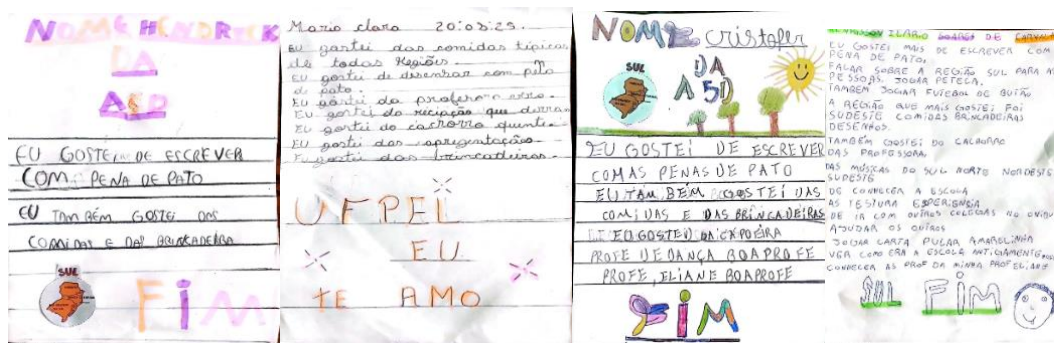 NOME HENDRICK
DA
AEP
EU GOSTEI DE ESCREVER
COM PENA DE PATO
EU TAMBÉM GOSTEI DAS
COMIDAS E DAS BRINCADEIRA
SUL
FIM
Maria clara 20:03:25.
EU gostei das comidas típicas
de todas Regiões.
EU gostei de desenhar com pena
de pato.
EU gostei da
EU gostei da que
EU gostei do cachorro quente.
EU gostei das apresentação.
EU gostei das brincadeiras.
UFPEL
EU
TE AMO
NOME cristofer
SUL
DA
A 5D
EU GOSTEI DE ESCREVER
COMAS PENAS DE PATO
EU TAM BÉM GOSTEI DAS
COMIDAS E DAS BRINCADEIRAS
EU GOSTEI DA CAPOEIRA
PROFE DE DANÇA BOA PROFE
PROFE, ELIANE BOA PROFE
FIM
SOARES DE
EU GOSTEI MAIS DE ESCREVER COM
PENA DE PATO.
FALAR SOBRE A REGIÃO SUL PARA
PESSOAS. JOGAR PETECA.
TAMBEM JOGAR FUTEBOL DE BUTÃO
A REGIÃO QUE MAIS GOSTEI FOI
SUDESTE COMIDAS BRINCADEIRAS
DESENHOS.
TAMBÉM GOSTEI DO
DAS PROFESSORA,
DAS MÚSICAS DO SUL NORTE NORDESTE
SUDESTE
DE CONHECER A ESCOLA
AS TESTURA ESPERIENCIA
DE IR COM OUTROS COLEGAS NO
AJUDAR OS OUTROS
JOGAR CARTA PULAR AMARELINHA
VER COMO ERA A ESCOLA ANTIGAMENTE
CONHECER AS PROF DA MINHA PROF
SUL FIM